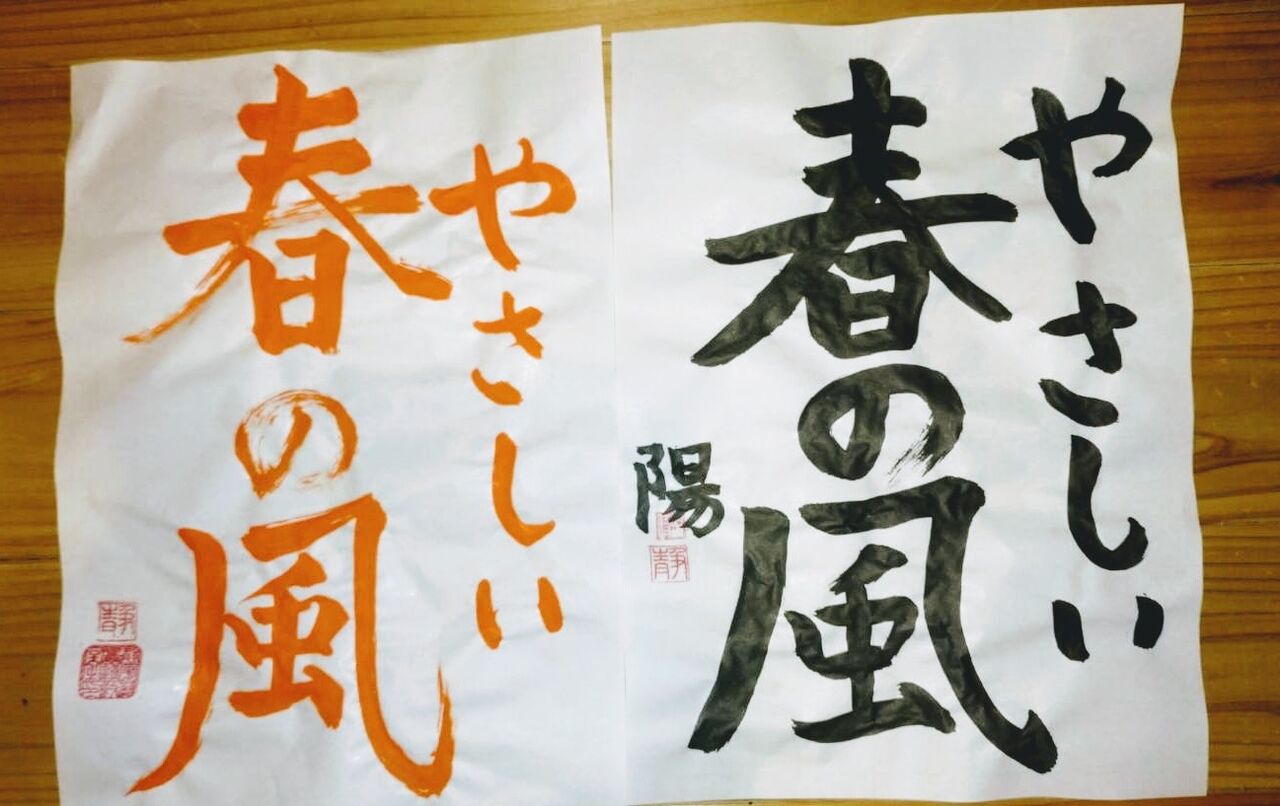 やさしい
春の風
陽
静
やさしい
春の風
静